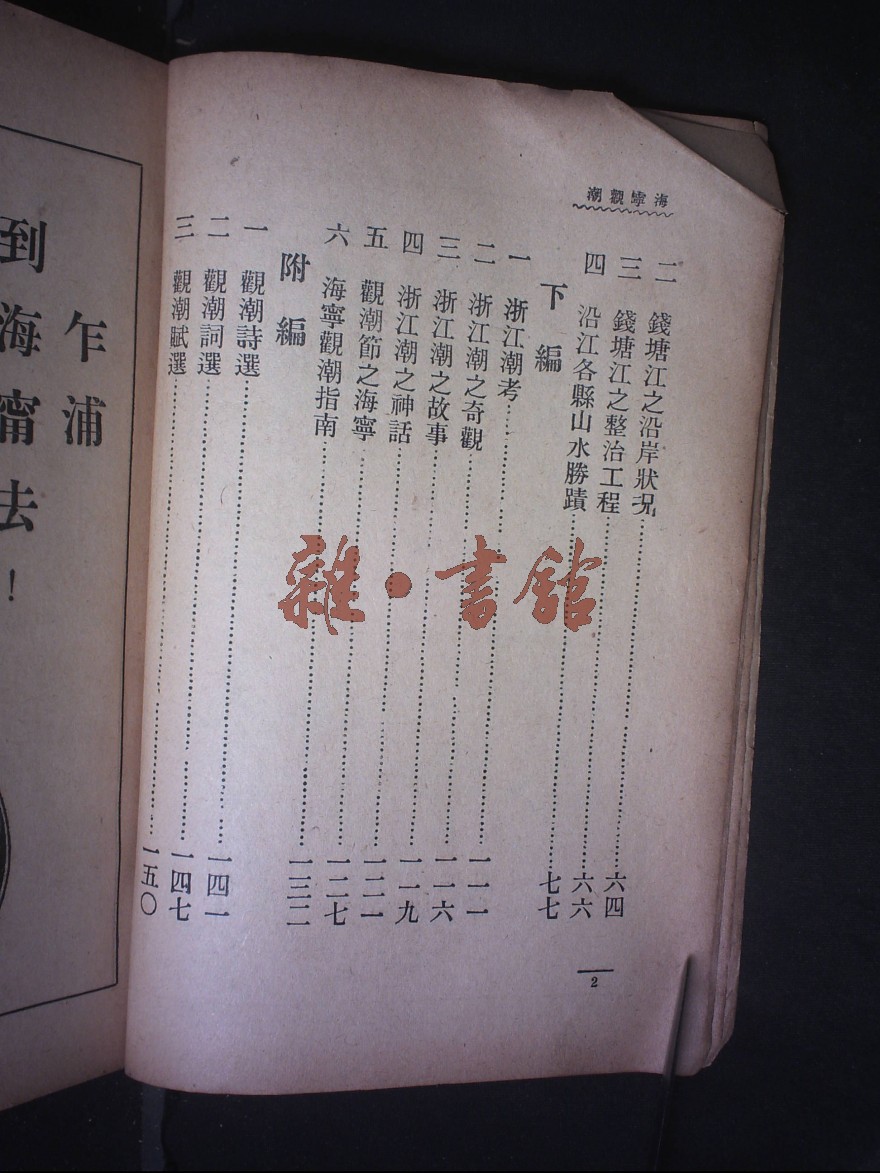 海寧觀潮
二 錢塘江之沿岸狀況……六四
三 錢塘江之整治工程……六六
四 沿江各縣山水勝蹟……七七
下編
一 浙江潮考……一一一
二 浙江潮之奇觀……一一六
三 浙江潮之故事……一一九
四 浙江潮之神話……一二一
五 觀潮節之海寧……一二七
六 海寧觀潮指南……一三二
附編
一 觀潮詩選……一四一
二 觀潮詞選……一四七
三 觀潮賦選……一五〇
2
雜·書館
乍浦
到海甯去！